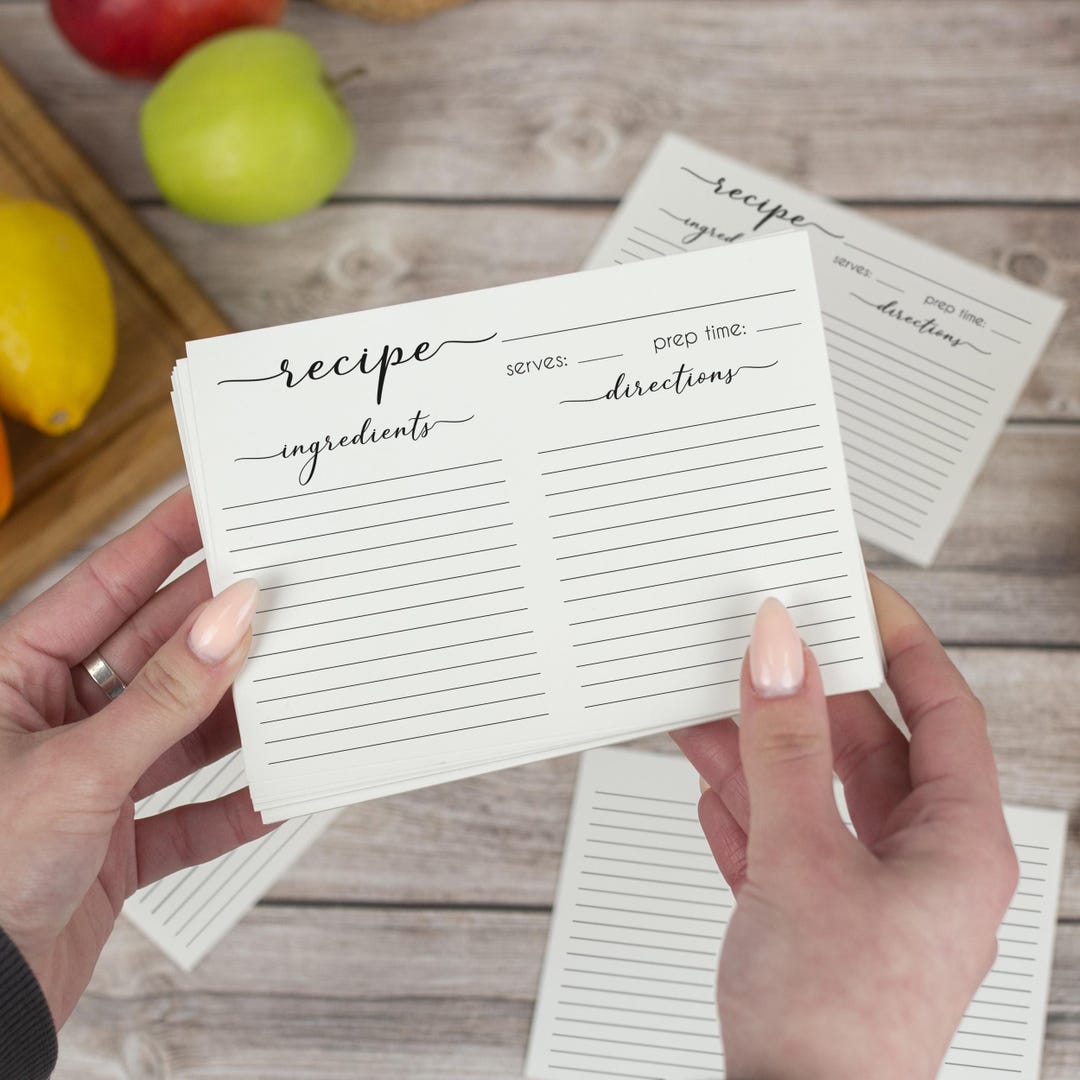 recipe
serves: prep time:
ingredients directions
recipe
ingred
serves: prep time:
directions